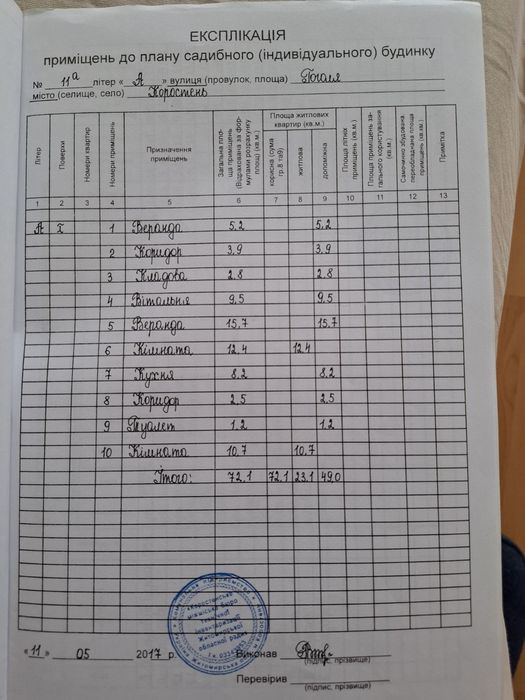 ЕКСПЛІКАЦІЯ
приміщень до плану садибного (індивідуального) будинку
№ 11а літер « А » вулиця (провулок, площа) Гоголя
місто (селище, село) Коростень
Літер Поверхи Номери квартир Номери приміщень Призначення приміщень Загальна площа приміщень (Відрахована за формулами розрахунку площ) (кв.м.) Площа житлових квартир (кв.м.) корисна (сума гр.8 та9) житлова допоміжна Площа літніх приміщень (кв.м.) Площа приміщень загального користування (кв.м.) Самочинно збудована, переобладнана площа приміщень (кв.м.) Примітка
1 2 3 4 5 6 7 8 9 10 11 12 13
А I 1 Веранда 5.2 5.2
2 Коридор 3.9 3.9
3 Кладова 2.8 2.8
4 Вітальня 9.5 9.5
5 Веранда 15.7 15.7
6 Кімната 12.4 12.4
7 Кухня 8.2 8.2
8 Коридор 2.5 2.5
9 Туалет 1.2 1.2
10 Кімната 10.7 10.7
Ітого: 72.1 72.1 23.1 49.0
«Коростенське
міжміське бюро
технічної
інвентаризації»
Житомирської
обласної ради
« 11 » 05 2017 р. Виконав
(підпис, прізвище)
Перевірив
(підпис, прізвище)